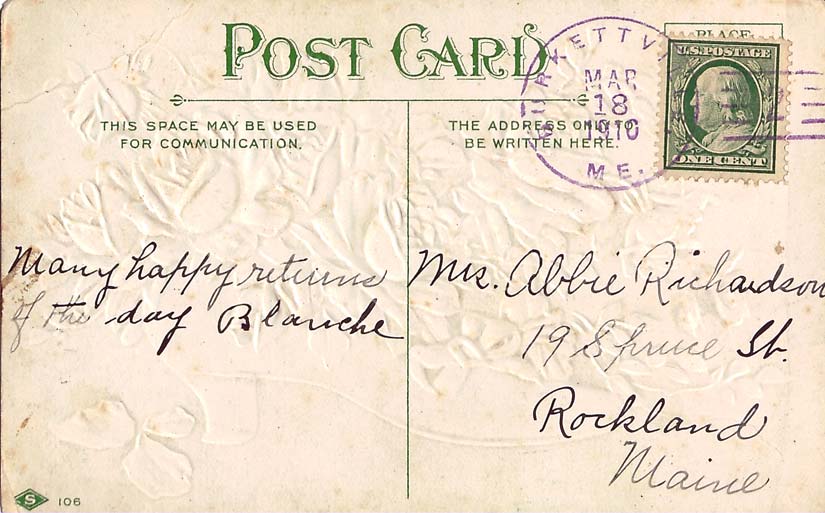 POST CARD
PLACE
U.S. POSTAGE
ONE CENT
BURKETTVILLE
MAR
18
1910
ME.
THIS SPACE MAY BE USED
FOR COMMUNICATION.
THE ADDRESS ONLY TO
BE WRITTEN HERE.
Many happy returns
of the day Blanche
Mrs. Abbie Richardson
19 Spruce St.
Rockland
Maine
S 106